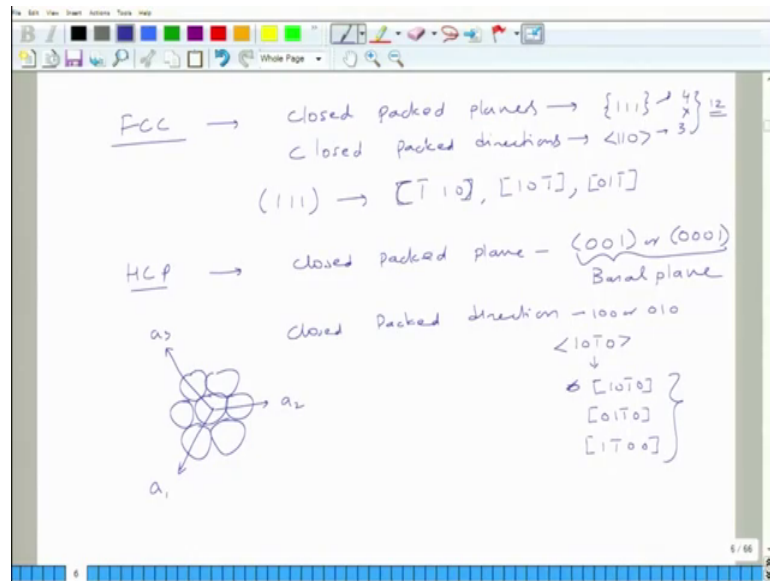 File Edit View Insert Actions Tools Help
B I
Whole Page
FCC → closed packed planes → {111} → 4
x } 12
closed packed directions → <110> → 3
(111) → [1̄10], [101̄], [011̄]
HCP → closed packed plane - (001) or (0001)
Basal plane
closed Packed direction - 100 or 010
<101̄0>
↓
[101̄0]
[011̄0]
[11̄00]
a3
a2
a1
6 / 66
6